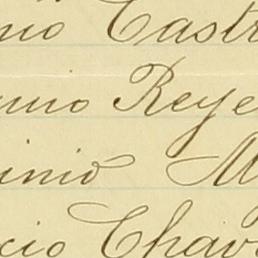 nio Castr
uno Reye
inio M
cio Chav